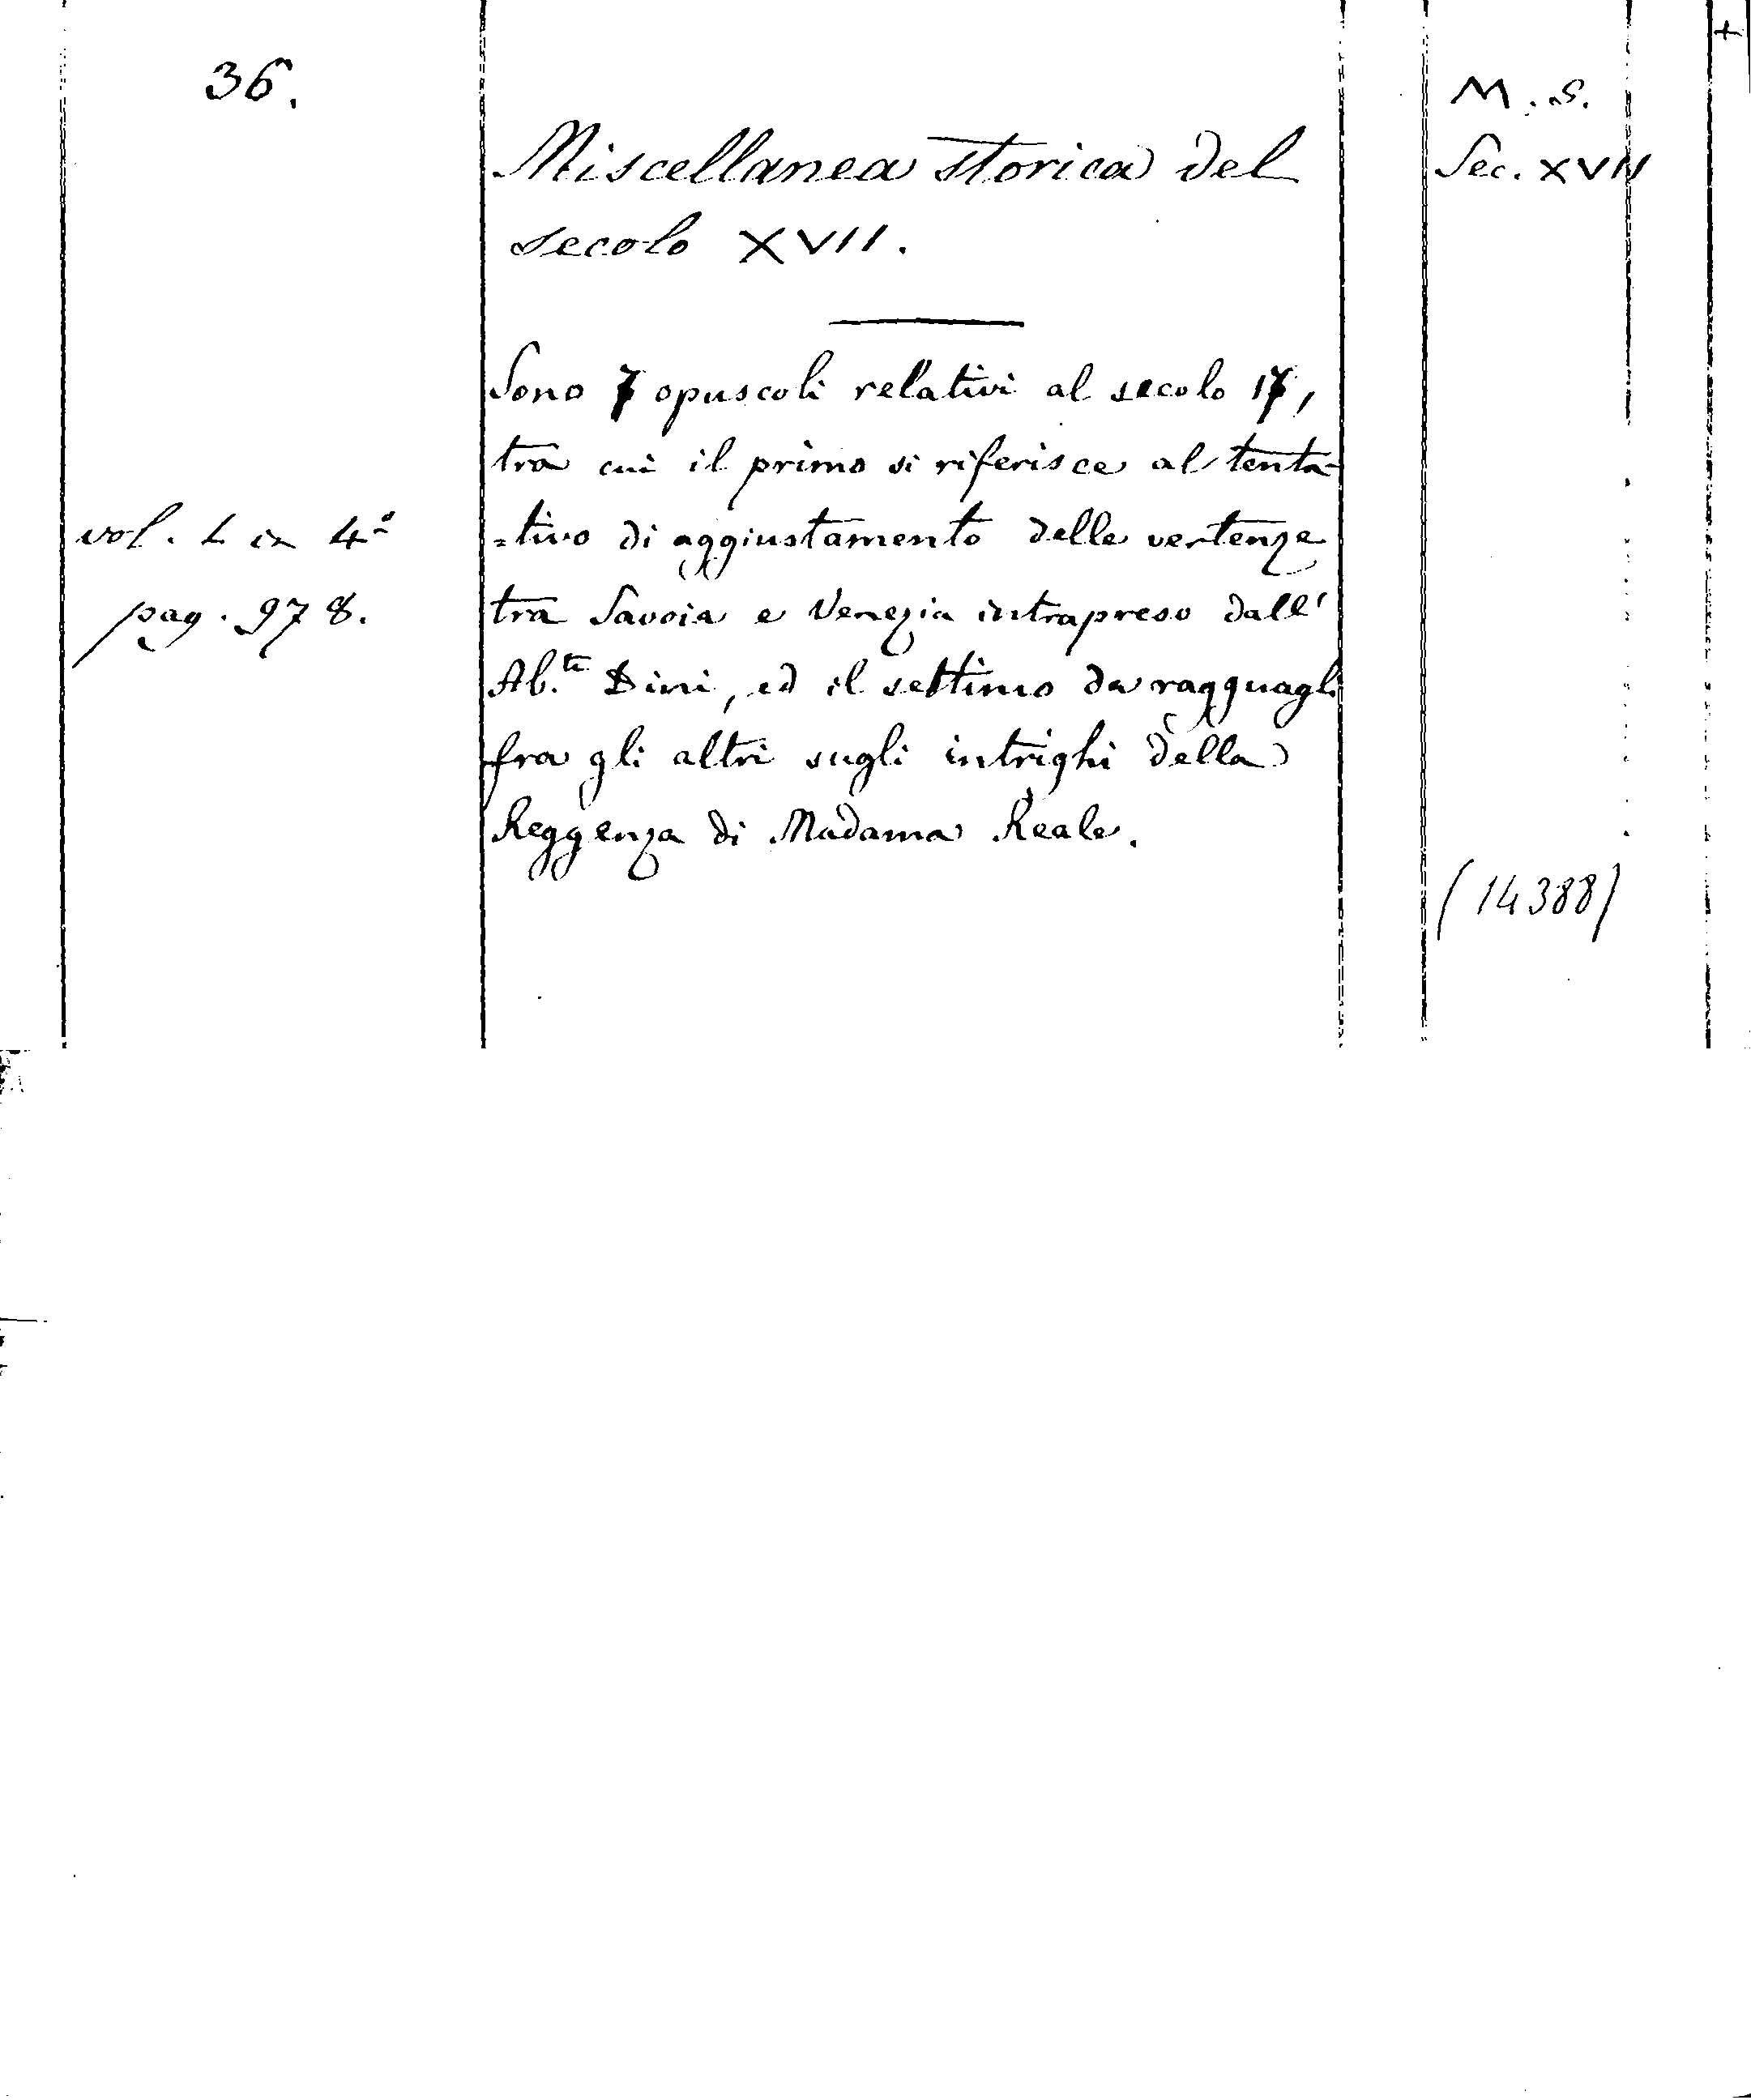 36.
M. S.
Sec. XVII
Miscellanea storica del
secolo XVII.
Sono 7 opuscoli relativi al secolo 17,
tra cui il primo si riferisce al tenta-
=tivo di aggiustamento delle vertenze
vol. 1 in 4°
tra Savoia e Venezia intrapreso dall'
pag. 978.
Ab.te Dini, ed il settimo da ragguagli
fra gli altri sugli intrighi della
Reggenza di Madama Reale.
(14388)